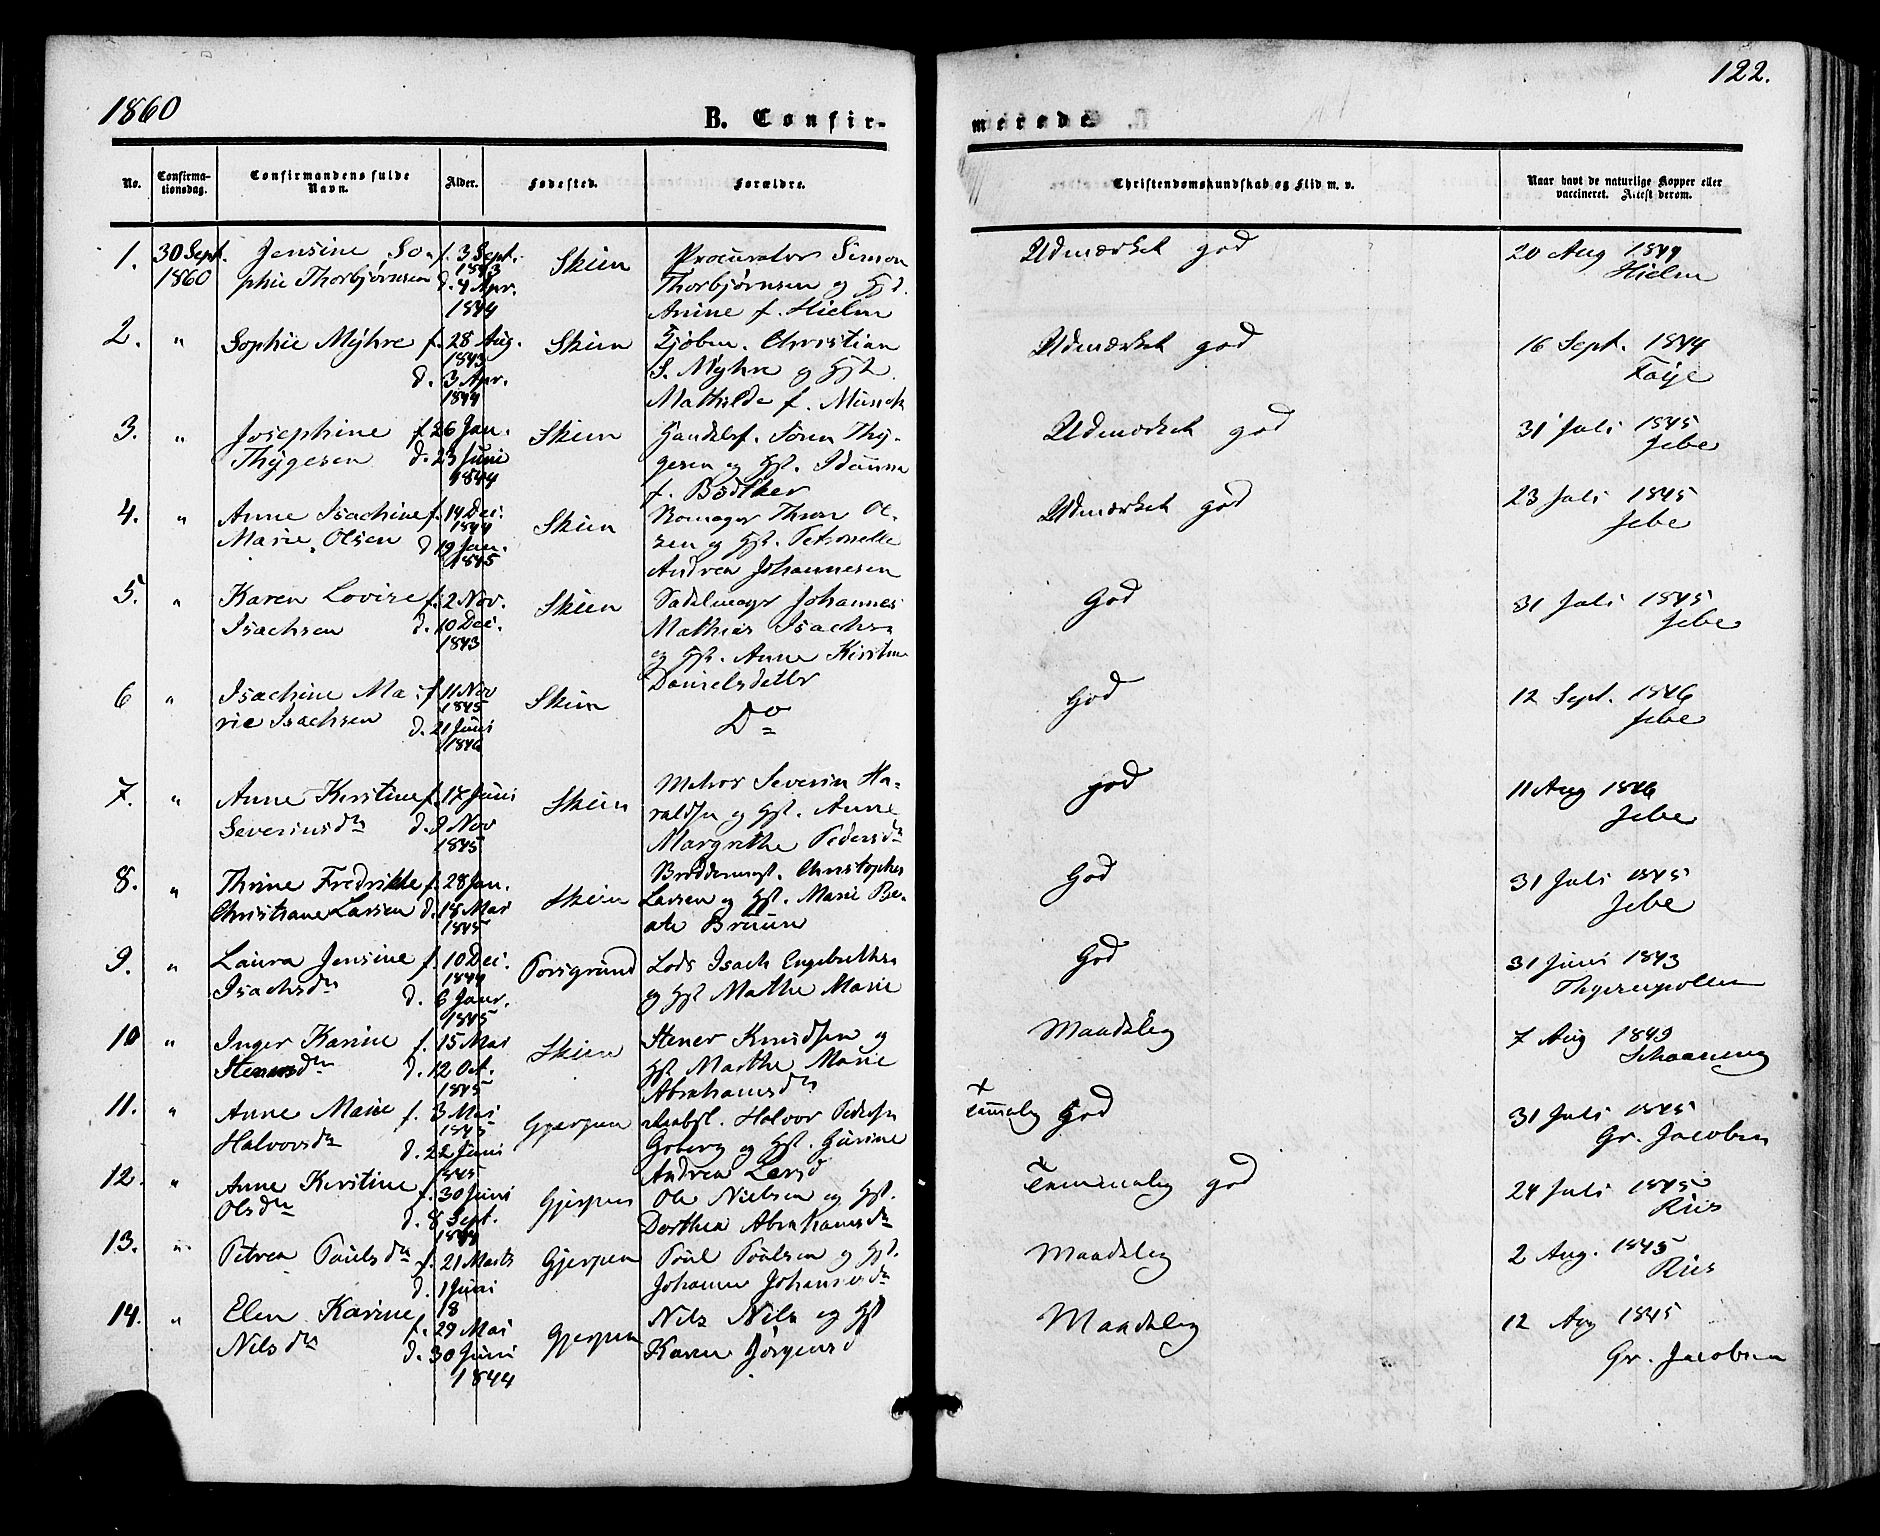 1860
B. Confir-
merede.
122.
No.
Confirma-
tionsdag.
Confirmandens fulde
Navn.
Alder.
Fødested.
Forældre.
Christendomskundskab og Flid m. v.
Naar havt de naturlige Kopper eller
vaccineret. Attest derom.
1. 30 Sept. Jensine So- f. 3 Sept. Skien Procurator Simon Udmærket god 20 Aug 1844
1860 phie Thorbjørnsen 1843 Thorbjørnsen og Hst. Hielm
d. 4 Apr. Anine f. Hielm
1844
2. " Sophie Myhre f. 28 Aug. Skien Kjøbm. Christian Udmærket god 16 Sept. 1844
1843 S. Myhre og Hst. Faije
d. 3 Apr. Mathilde f. Munck
1844
3. " Josephine f. 26 Jan. Skien Handelsf. Søren Thy- Udmærket god 31 Juli 1845
Thygesen d. 23 Juni gesen og Hst. Jebe
1844 f. Bødtker
4. " Anne Isachine f. 14 Dec. Skien Thron Ol- Udmærket god 23 Juli 1845
Marie Olsen 1844 sen og Hst. Petronelle Jebe
d. 19 Jan. Andrea Johannesen
1845
5. " Karen Lovise f. 2 Nov. Skien Sadelmager Johannes God 31 Juli 1845
Isachsen d. 10 Dec. Mathias Isachsn Jebe
1843 og Hst. Anne Kirstine
Danielsdatter
6 " Isachine Ma- f. 11 Nov Skien Do God 12 Sept. 1846
rie Isachsen 1845 Jebe
d. 21 Juni
1846
7. " Anne Kirstine f. 17 Juni Skien Severin Ha- god 11 Aug 1846
Severinsdr d. 9 Nov raldsn og Hst. Anne Jebe
1845 Margrethe Pedersdr
8. " Thrine Fredrikke f. 28 Jan. Skien Christopher God 31 Juli 1845
Christiane Larsen d. 18 Mai Larsen og Hst. Marie Be- Jebe
1845 ate Bruun
9. " Laura Jensine f. 10 Dec. Porsgrund Lods Isach Engebrethsn God 31 Juni 1843
Isachsdr 1844 og Hst Mathe Marie
d. 6 Janr.
1845
10 " Inger Karine f. 15 Mai Skien Stener Knudsen og Maadelig 7 Aug 1849
Stenersdr d. 12 Oct. Hst Marthe Marie Schaanning
1845 Abrahamsdr
11. " Anne Marie f. 3 Mai Gjerpen Halvor Pedersn Temmelig God 31 Juli 1845
Halvorsdr 1845 Goberg og Hst. Gurine Gr. Jacobsen
d. 22 Juni Andrea Larsd
1845
12. " Anne Kirstine f. 30 Juni Gjerpen Ole Nielsen og Hst. Temmelig god 24 Juli 1845
Olsdr d. 8 Sept. Dorthea Abrahamsdr Riis
1844
13. " Petrea Paulsdr f. 21 Marts Gjerpen Poul Poulsen og Hst. Maadelig 2 Aug. 1845
d. 1 Juni Johanne Johansdr Riis
18
14. " Elen Karine f. 29 Mai Gjerpen Nils Nilsn og Hst Maadelig 12 Aug 1845
Nilsdr d. 30 Juni Karen Jørgensd Gr. Jacobsen
1844